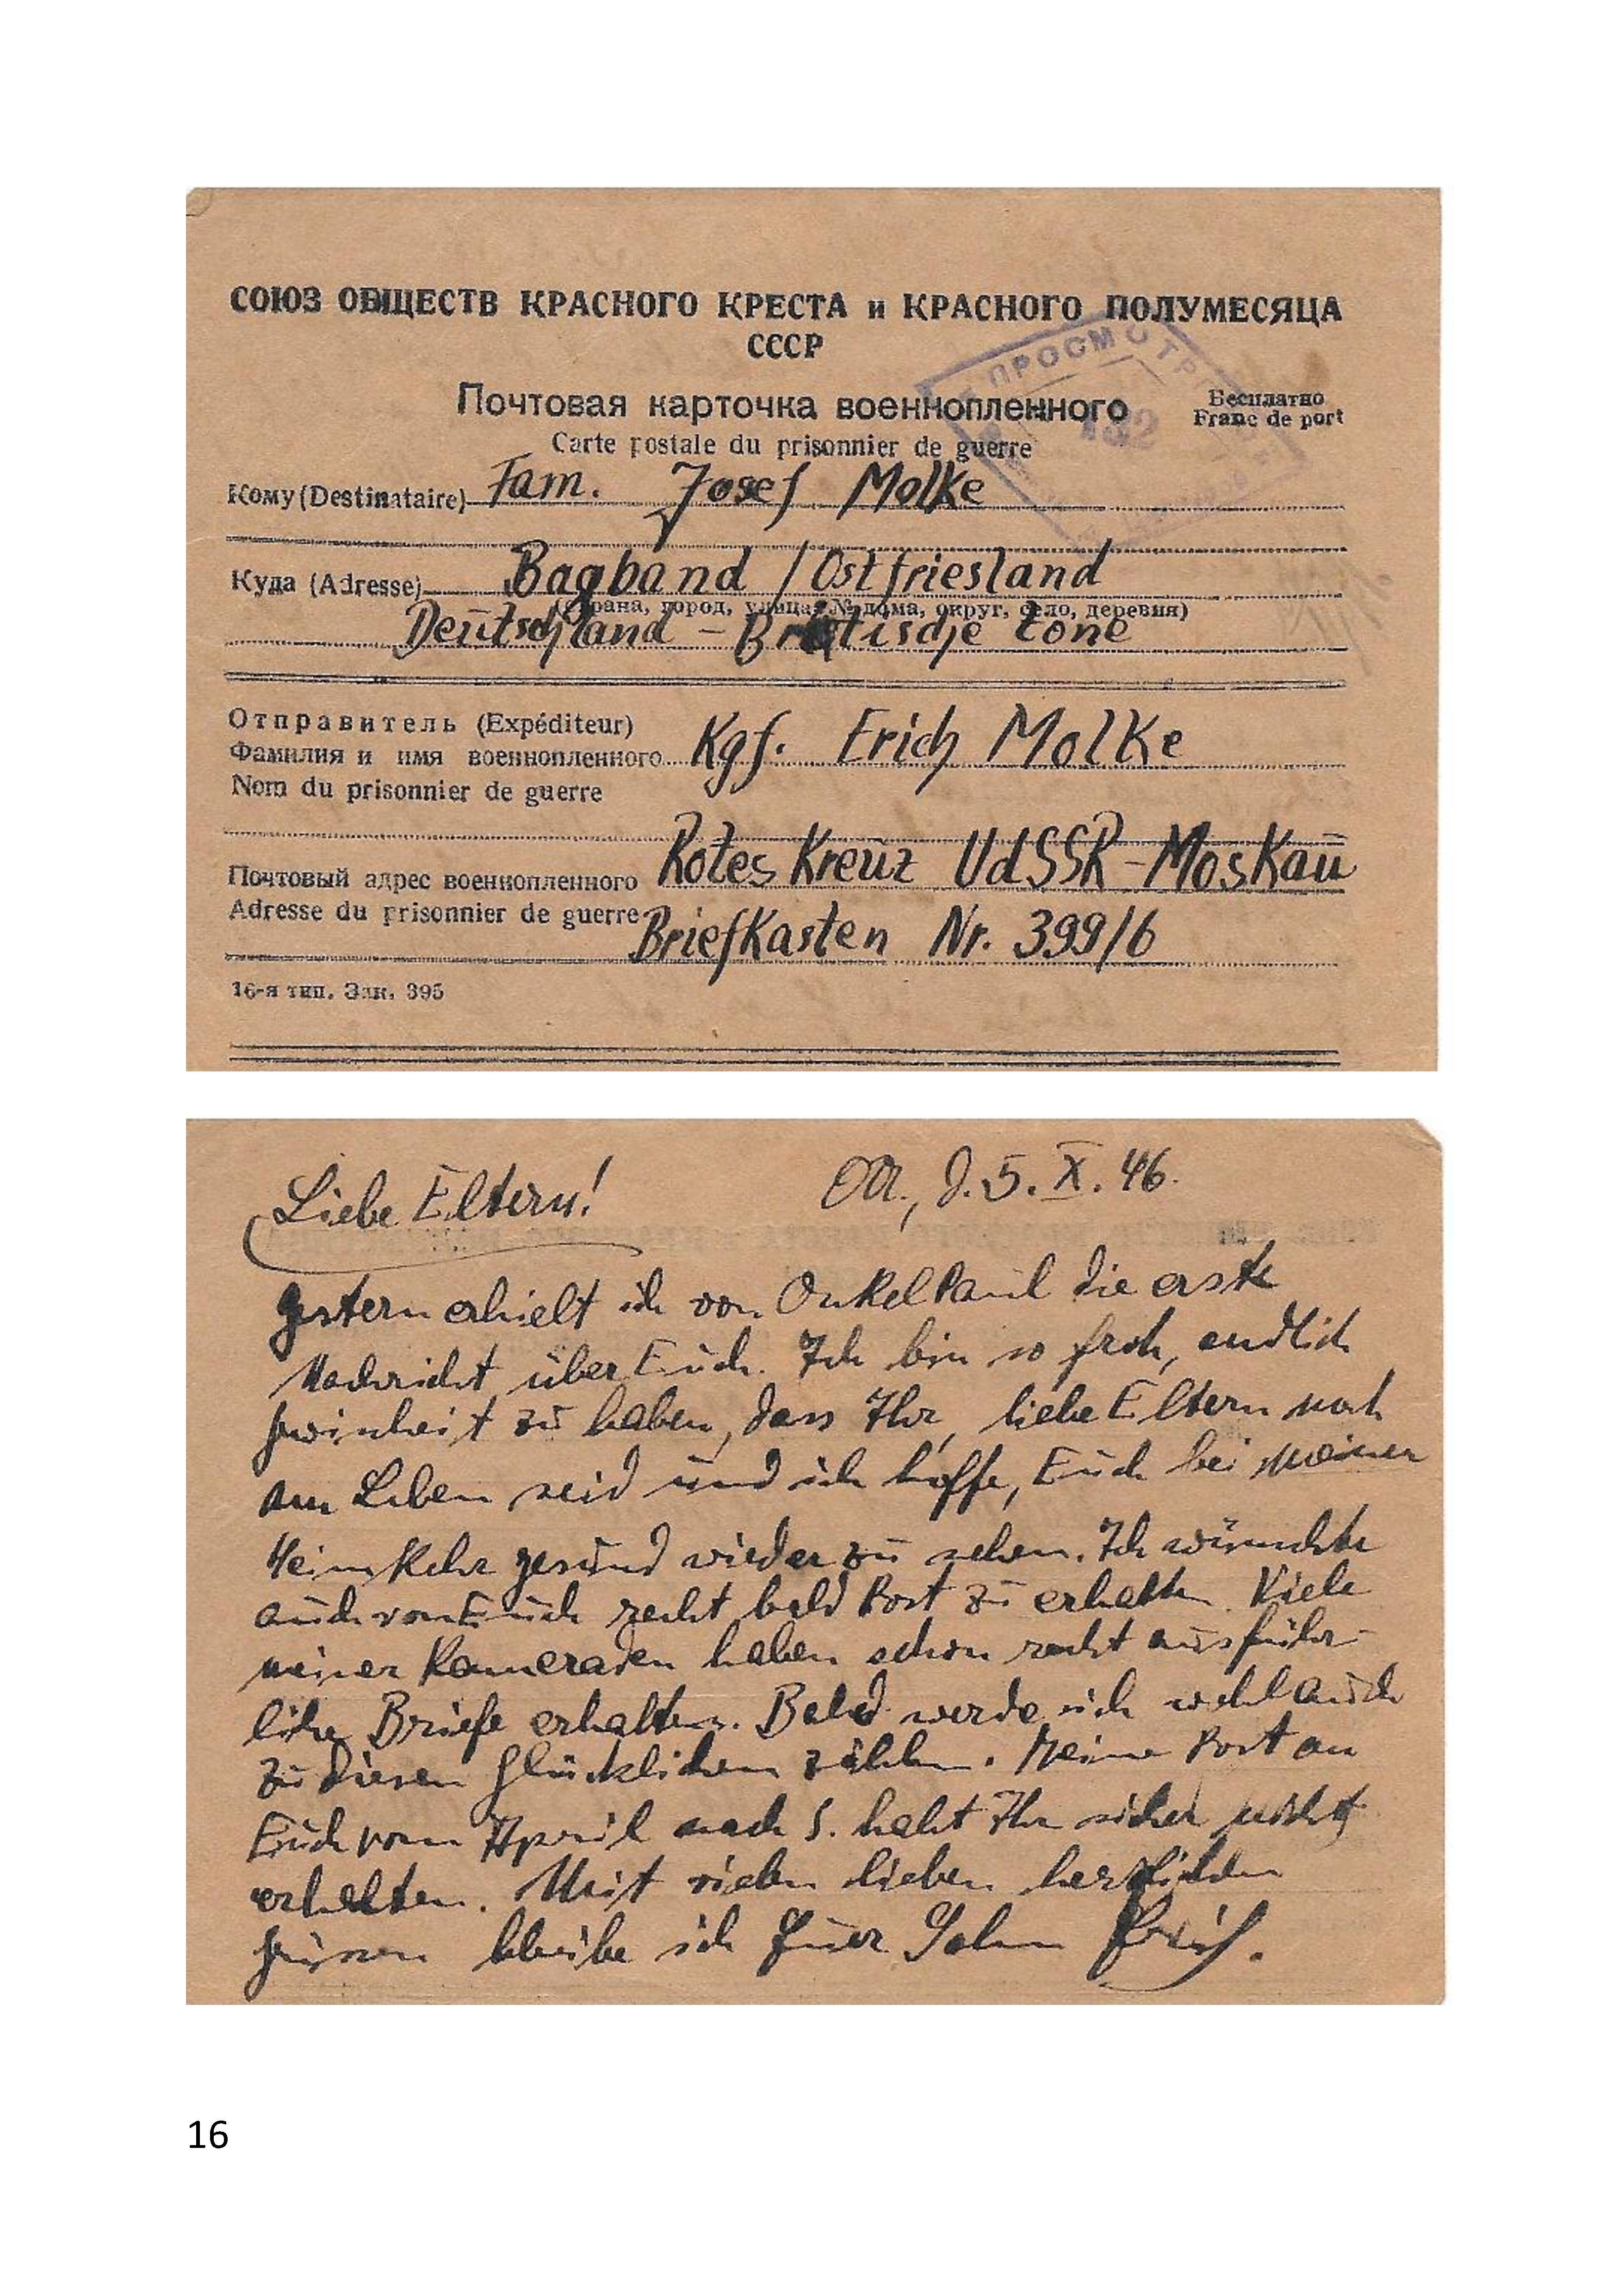 СОЮЗ ОБЩЕСТВ КРАСНОГО КРЕСТА и КРАСНОГО ПОЛУМЕСЯЦА
СССР
ПРОСМОТР
Почтовая карточка военнопленного
Бесплатно
Franc de port
Carte postale du prisonnier de guerre
Кому (Destinataire) Fam. Josef Molke
Куда (Adresse) Bagband / Ostfriesland
(Страна, город, улица, № дома, округ, село, деревня)
Deutschland - Britische Zone
Отправитель (Expéditeur)
Фамилия и имя военнопленного Kgf. Erich Molke
Nom du prisonnier de guerre
Почтовый адрес военнопленного Rotes Kreuz UdSSR - Moskau
Adresse du prisonnier de guerre Briefkasten Nr. 399/6
16-я тип. Зак. 395
Liebe Eltern! d. 5. X. 46.
Gestern erhielt ich von Onkel Paul die erste
Nachricht über Euch. Ich bin so froh, endlich
Gewissheit zu haben, dass Ihr, liebe Eltern noch
am Leben seid und ich hoffe, Euch bei meiner
Heimkehr gesund wieder zu sehen. Ich wünschte
auch von Euch recht bald Post zu erhalten. Viele
meiner Kameraden haben schon recht ausführ-
liche Briefe erhalten. Bald werde ich wohl auch
zu diesen Glücklichen zählen. Meine Post an
Euch vom April nach S. habt Ihr sicher nicht
erhalten. Mit vielen lieben herzlichen
Grüssen bleibe ich Euer Sohn Erich.
16